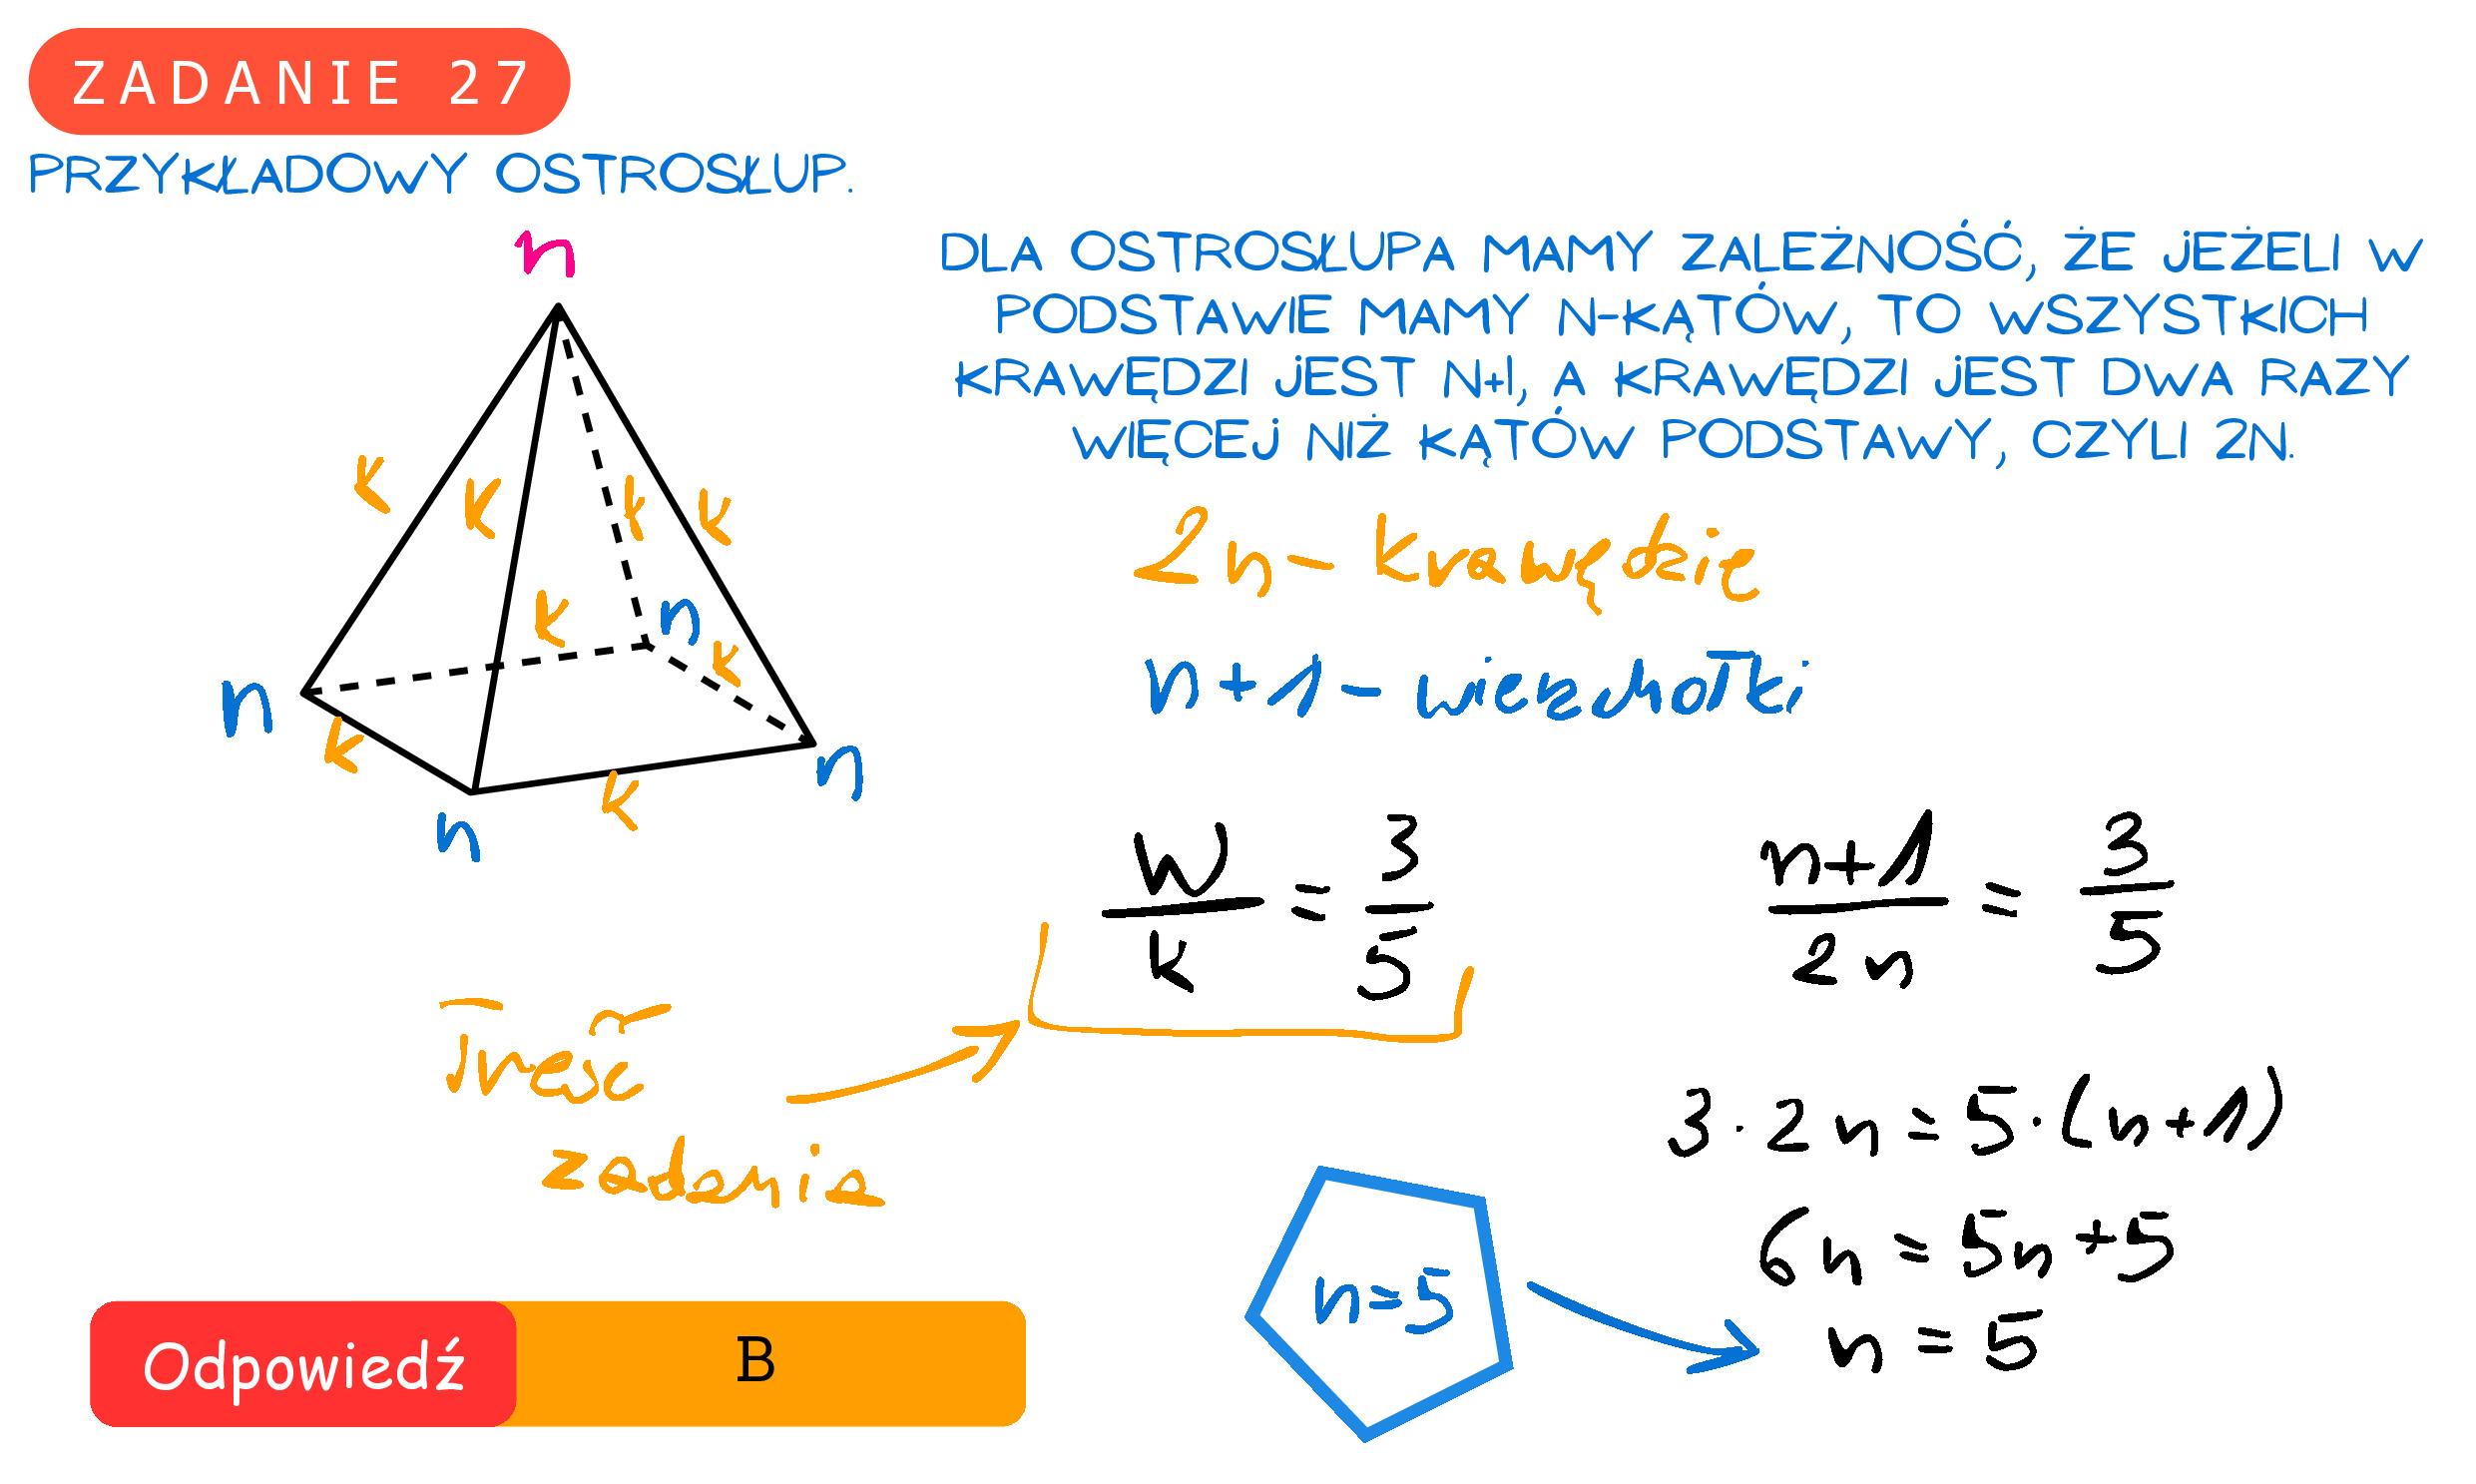 ZADANIE 27
PRZYKŁADOWY OSTROSŁUP.
DLA OSTROSŁUPA MAMY ZALEŻNOŚĆ, ŻE JEŻELI W
PODSTAWIE MAMY N-KĄTÓW, TO WSZYSTKICH
KRAWĘDZI JEST N+1, A KRAWĘDZI JEST DWA RAZY
WIĘCEJ NIŻ KĄTÓW PODSTAWY, CZYLI 2N.
n
k k k k
k n
k
n
k
k
n
n
2n - krawędzie
n+1 - wierzchołki
W/k = 3/5
n+1/2n = 3/5
Treść
zadania
3·2n = 5·(n+1)
6n = 5n+5
n = 5
n=5
Odpowiedź B